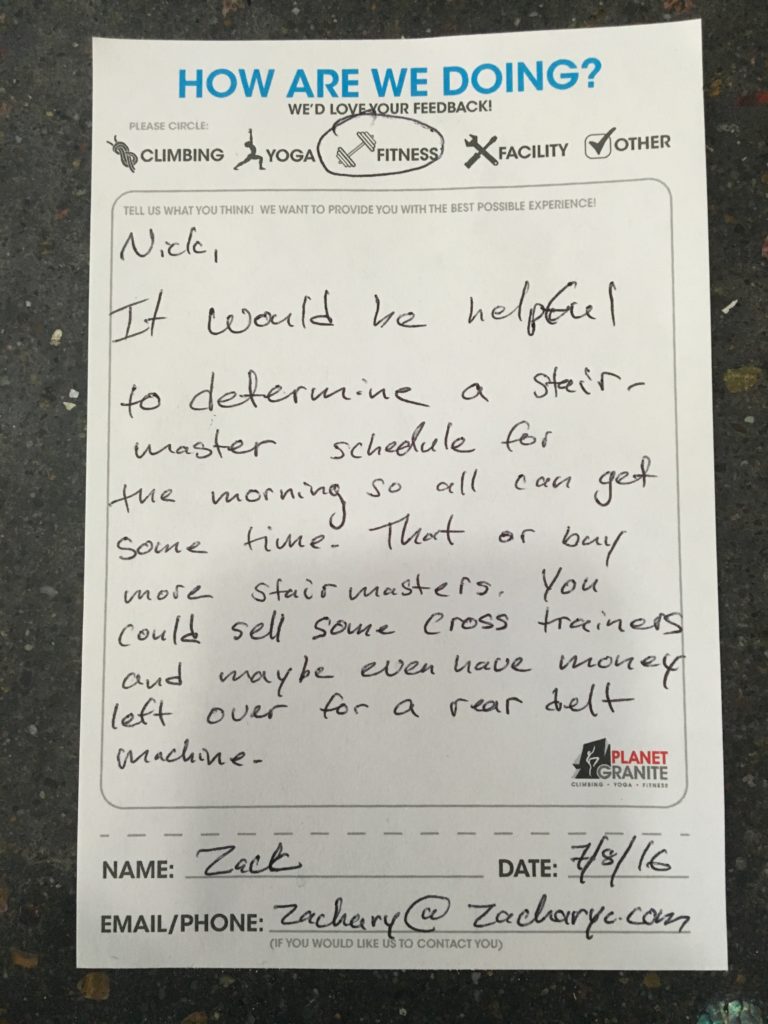 HOW ARE WE DOING?
WE'D LOVE YOUR FEEDBACK!
PLEASE CIRCLE:
CLIMBING YOGA FITNESS FACILITY OTHER
TELL US WHAT YOU THINK! WE WANT TO PROVIDE YOU WITH THE BEST POSSIBLE EXPERIENCE!
Nick,
It would be helpful
to determine a stair-
master schedule for
the morning so all can get
some time. That or buy
more stairmasters. You
could sell some cross trainers
and maybe even have money
left over for a rear delt
machine.
PLANET
GRANITE
CLIMBING • YOGA • FITNESS
NAME: Zack DATE: 7/8/16
EMAIL/PHONE: zachary@zacharyc.com
(IF YOU WOULD LIKE US TO CONTACT YOU)